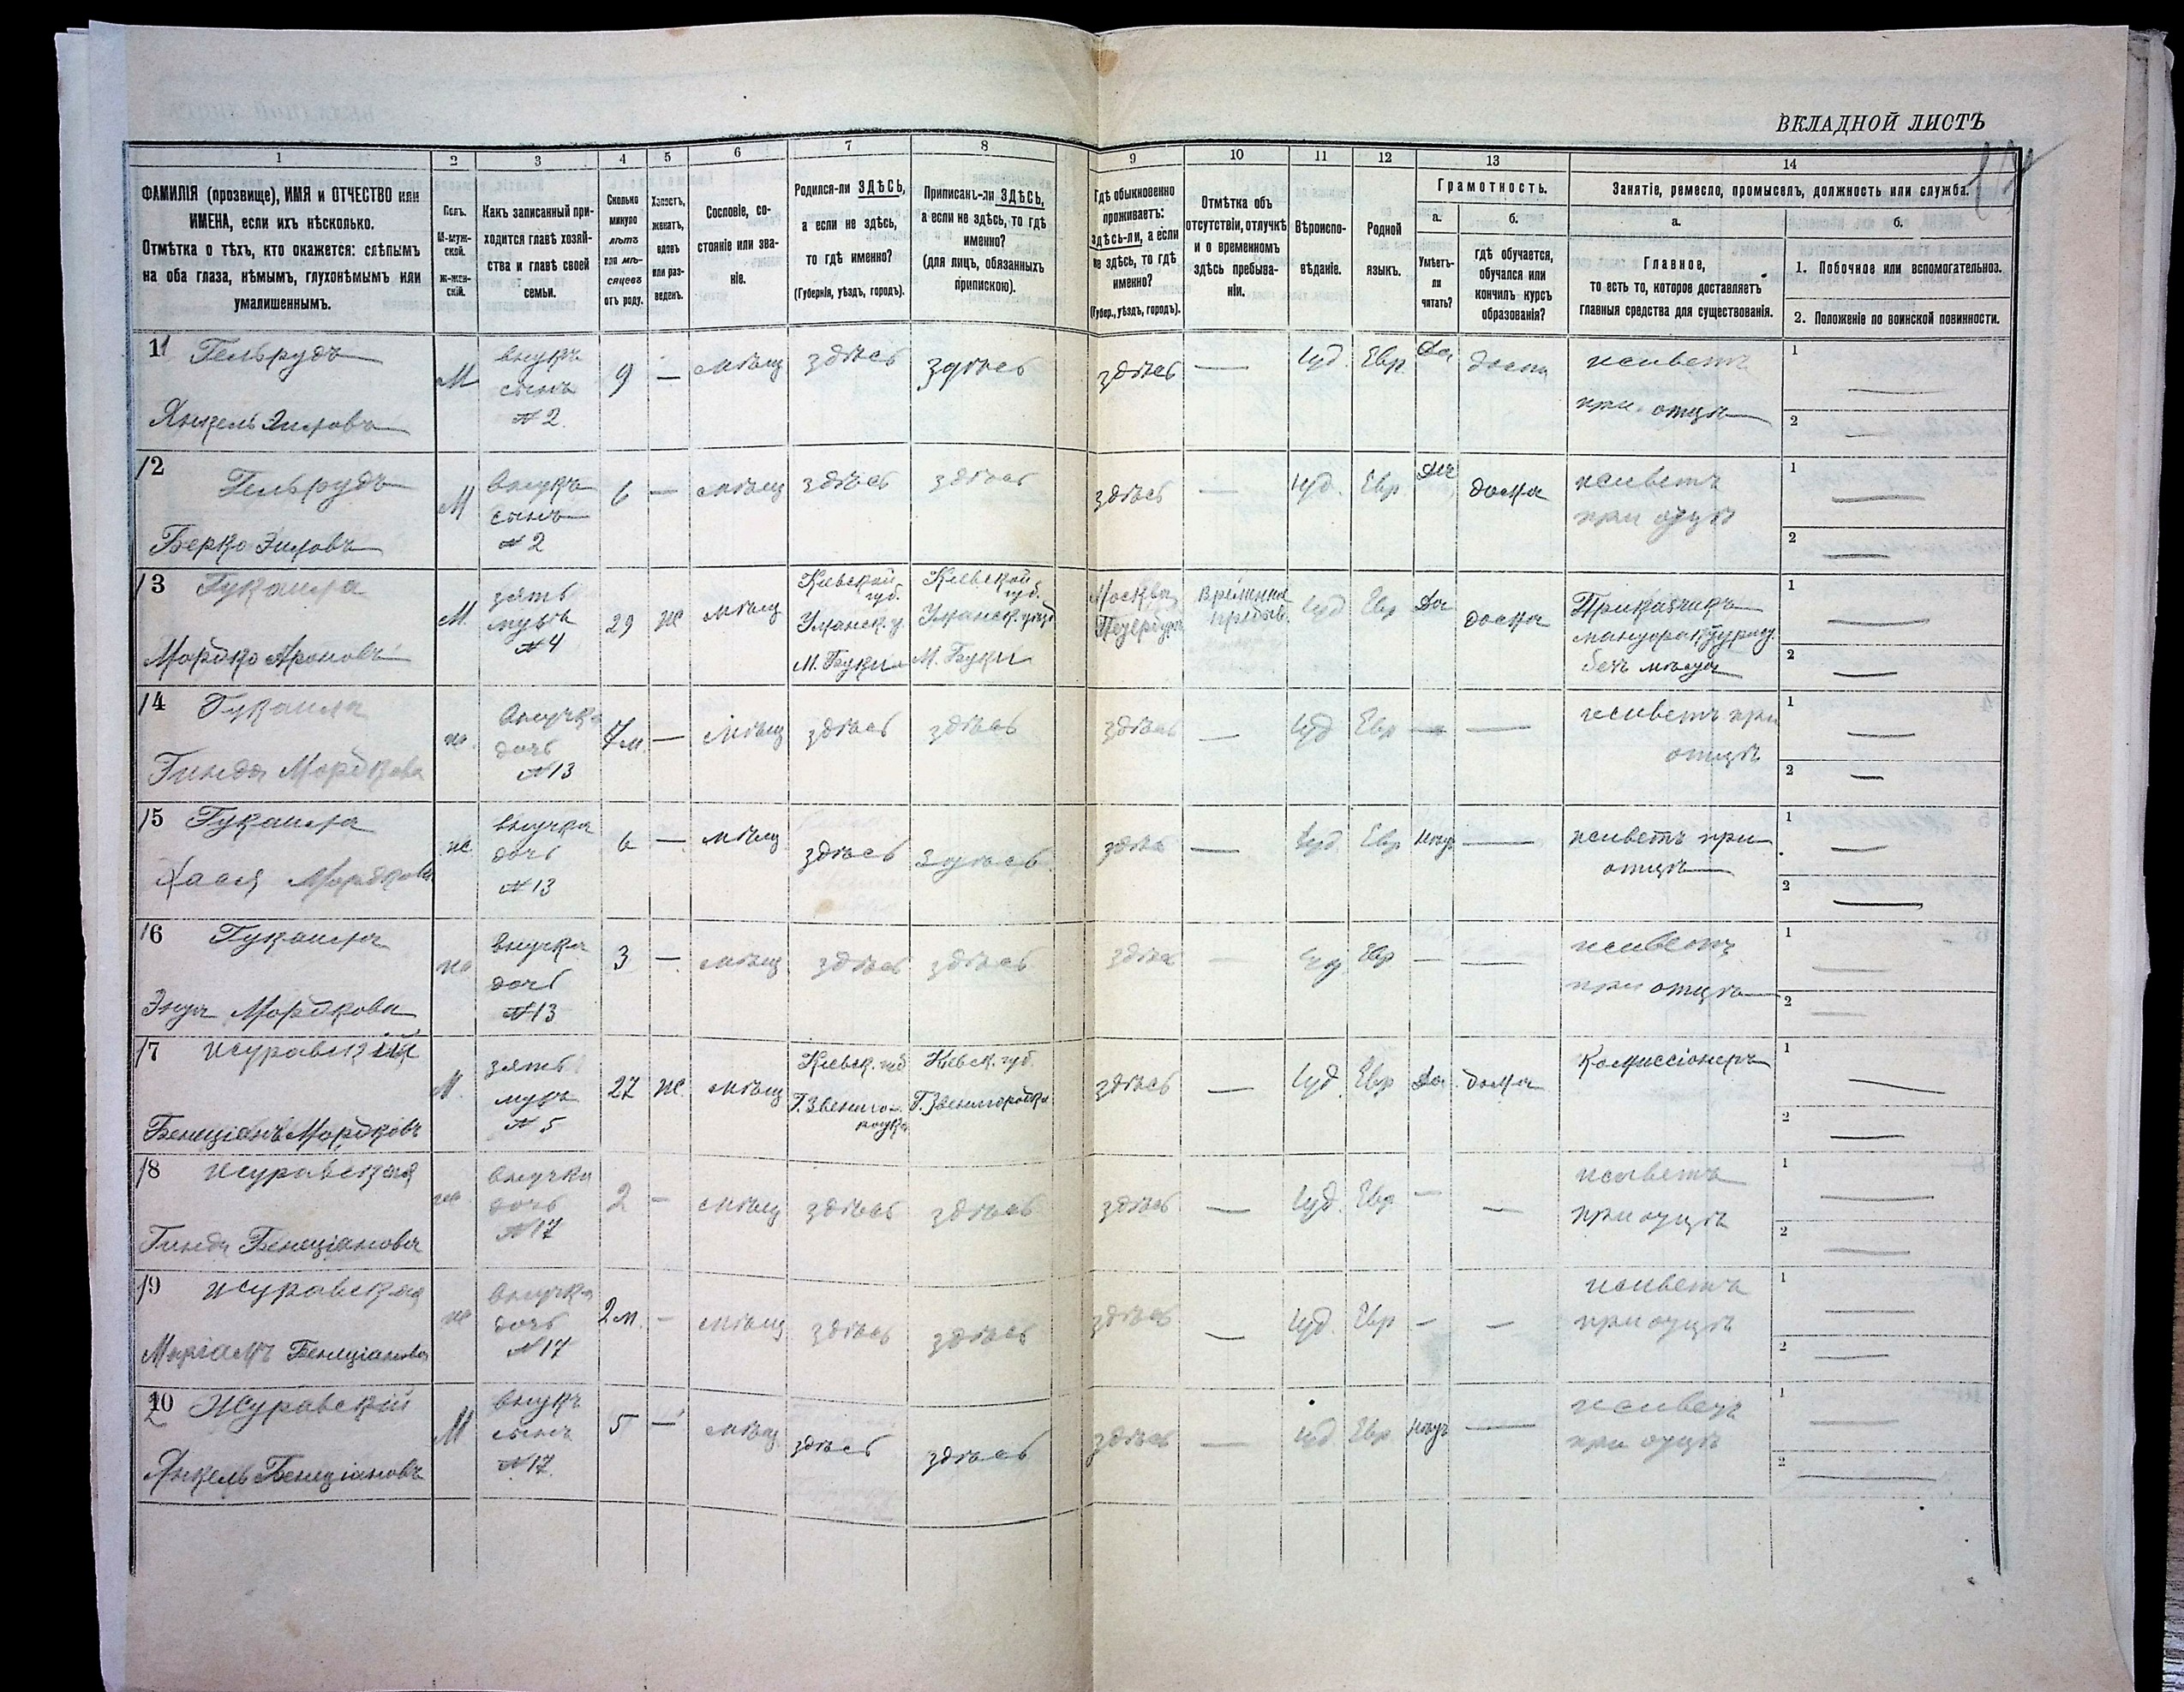 ВКЛАДНОЙ ЛИСТЪ
1 2 3 4 5 6 7 8 9 10 11 12 13 14
ФАМИЛІЯ (прозвище), ИМЯ и ОТЧЕСТВО или
ИМЕНА, если ихъ нѣсколько.
Отмѣтка о тѣхъ, кто окажется: слѣпымъ
на оба глаза, нѣмымъ, глухонѣмымъ или
умалишеннымъ.
Полъ.
М-муж-
ской.
Ж-жен-
скій.
Какъ записанный при-
ходится главѣ хозяй-
ства и главѣ своей
семьи.
Сколько
минуло
лѣтъ
или мѣ-
сяцевъ
отъ роду.
Холостъ,
женатъ,
вдовъ
или раз-
веденъ.
Сословіе, со-
стояніе или зва-
ніе.
Родился-ли ЗДѢСЬ,
а если не здѣсь,
то гдѣ именно?
(Губернія, уѣздъ, городъ).
Приписанъ-ли ЗДѢСЬ,
а если не здѣсь, то гдѣ
именно?
(для лицъ, обязанныхъ
припискою).
Гдѣ обыкновенно
проживаетъ:
здѣсь-ли, а если
не здѣсь, то гдѣ
именно?
(Губер., уѣздъ, городъ).
Отмѣтка объ
отсутствіи, отлучкѣ
и о временномъ
здѣсь пребыва-
ніи.
Вѣроиспо-
вѣданіе.
Родной
языкъ.
Грамотность.
а.
Умѣетъ-
ли
читать?
б.
гдѣ обучается,
обучался или
кончилъ курсъ
образованія?
Занятіе, ремесло, промыселъ, должность или служба.
а.
Главное,
то есть то, которое доставляетъ
главныя средства для существованія.
б.
1. Побочное или вспомогательное.
2. Положеніе по воинской повинности.
11 Гельрудъ
Янкель Эилевъ
М
внукъ
сынъ
№ 2
9
—
мѣщ
здѣсь
здѣсь
здѣсь
—
Іуд.
Евр.
Да
дома
живетъ
при отцѣ
1
2
12
Гельрудъ
Берко
М
внукъ
сынъ
№ 2
6
—
мѣщ
здѣсь
здѣсь
здѣсь
—
Іуд.
Евр
Да
дома
живетъ
при отцѣ
1
2
13
Мордко Ароновъ
М.
зять
мужъ
№ 4
29
ж
мѣщ
Кіевской
губ.
Уманск. у.
М. Буки
Кіевской
губ.
Уманск. уѣзд
М. Буки
Москва
Временно
пребыв.
Іуд
Евр
Да
дома
Приказчикъ
безъ мѣста
1
2
14
Гинда Мордкова
ж.
внучка
дочь
№ 13
7 м.
—
мѣщ
здѣсь
здѣсь
здѣсь
—
Іуд
Евр
—
—
живетъ при
отцѣ
1
2
15
Хася Мордкова
ж.
внучка
дочь
№ 13
6
—
мѣщ
здѣсь
здѣсь
здѣсь
—
Іуд
Евр
—
живетъ при
отцѣ
1
2
16
Мордкова
ж
внучка
дочь
№ 13
3
—
мѣщ
здѣсь
здѣсь
здѣсь
—
Іуд
Евр
—
—
живетъ
при отцѣ
1
2
17 Журавскій
Бенціанъ Мордковъ
М.
зять
мужъ
№ 5
27
ж.
мѣщ
Кіевск. губ
Г. Звениго-
родка
Кіевск. губ.
Г. Звенигородка
здѣсь
—
Іуд.
Евр
Да
дома
Коммиссіонеръ
1
2
18 Журавская
Гинда Бенціанова
ж.
внучка
дочь
№ 17
2
—
мѣщ
здѣсь
здѣсь
здѣсь
—
Іуд.
Евр
—
—
живетъ
при отцѣ
1
2
19 Журавская
Маріамъ Бенціанова
ж
внучка
дочь
№ 17
2 м.
—
мѣщ
здѣсь
здѣсь
здѣсь
—
Іуд.
Евр
—
—
живетъ
при отцѣ
1
2
20 Журавскій
Янкель Бенціановъ
М
внукъ
сынъ
№ 17
5
—
мѣщ
здѣсь
здѣсь
здѣсь
—
Іуд.
Евр
—
живетъ
при отцѣ
1
2